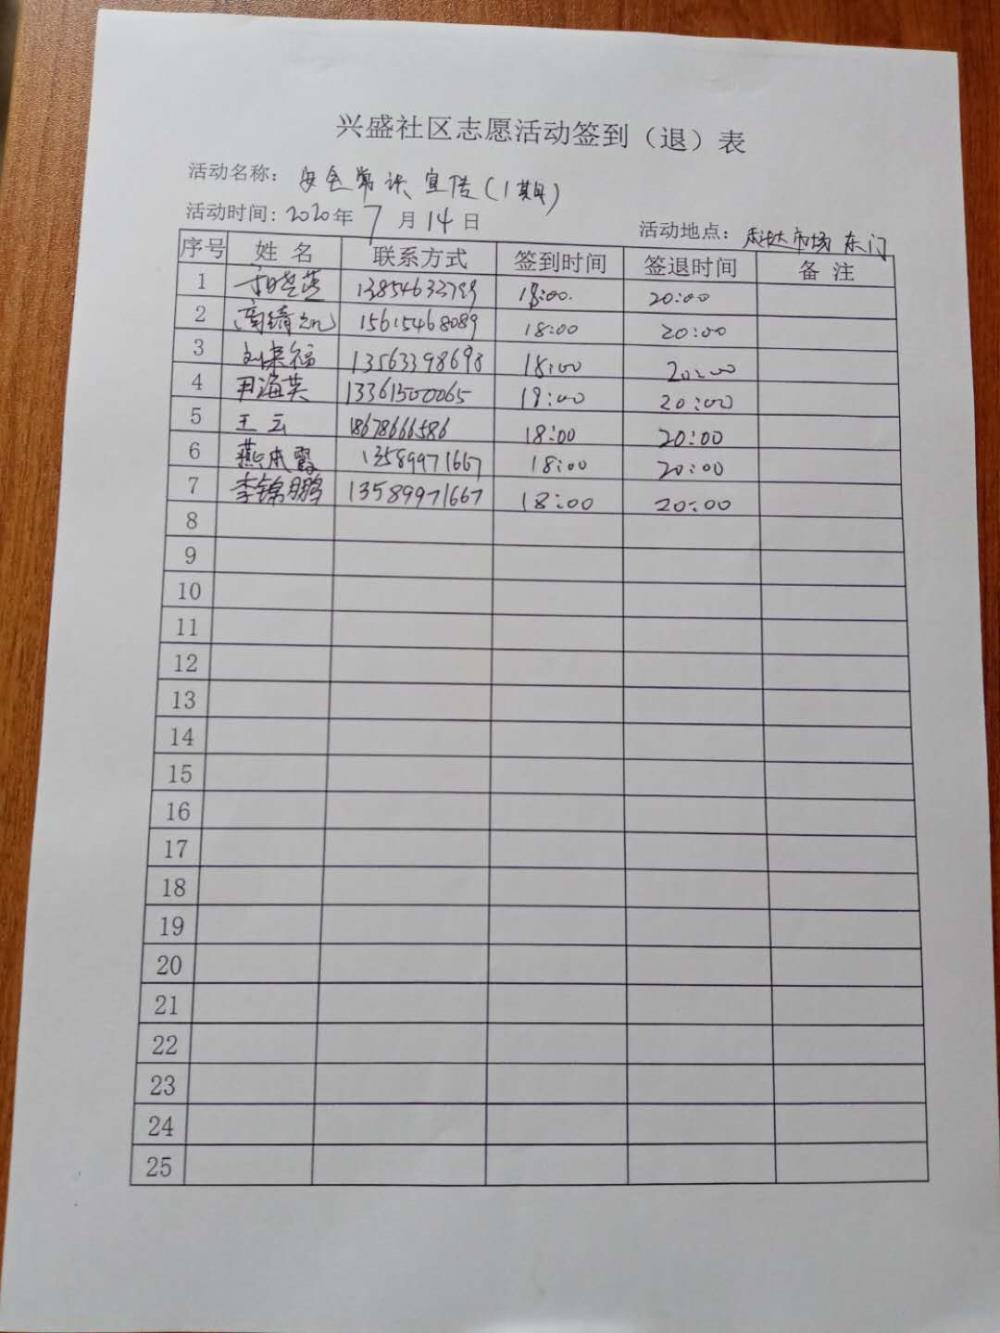 兴盛社区志愿活动签到（退）表
活动名称：安全常识宣传（1期）
活动时间：2020年7月14日
活动地点： 市场 东门
序号 姓名 联系方式 签到时间 签退时间 备注
1 13854633789 18:00. 20:00
2 15615468089 18:00 20:00
3 刘来福 13563398698 18:00 20:00
4 尹海英 13361500065 18:00 20:00
5 王云 18678666586 18:00 20:00
6 13589971667 18:00 20:00
7 李锦鹏 13589971667 18:00 20:00
8
9
10
11
12
13
14
15
16
17
18
19
20
21
22
23
24
25